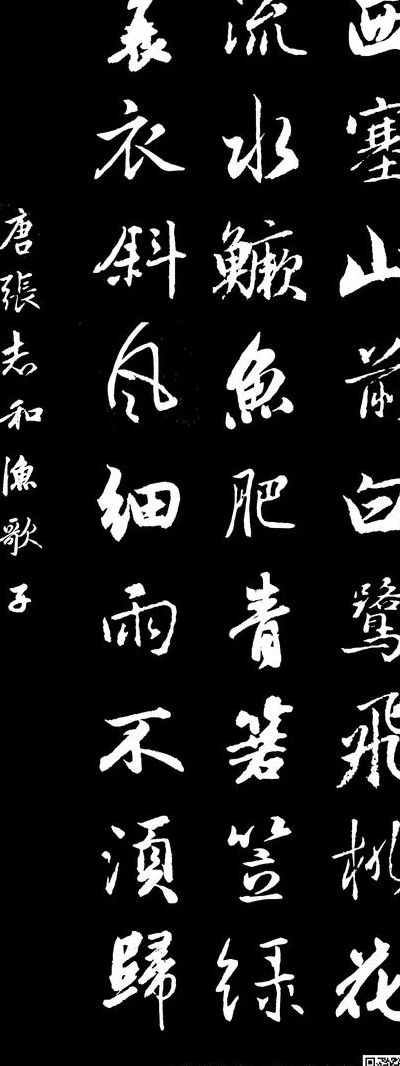 西塞山前白鷺飛桃花
流水鱖魚肥青箬笠绿
蓑衣斜风细雨不須歸
唐張志和漁歌子